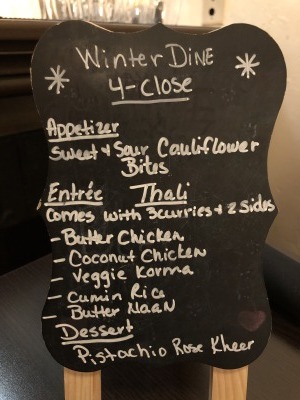 Winter Dine
4-Close
Appetizer
Sweet & Sour Cauliflower
Bites
Entrée Thali
Comes with 3 curries + 2 Sides
- Butter Chicken
- Coconut Chicken
- Veggie Korma
- Cumin Rice
- Butter Naan
Dessert
Pistachio Rose Kheer